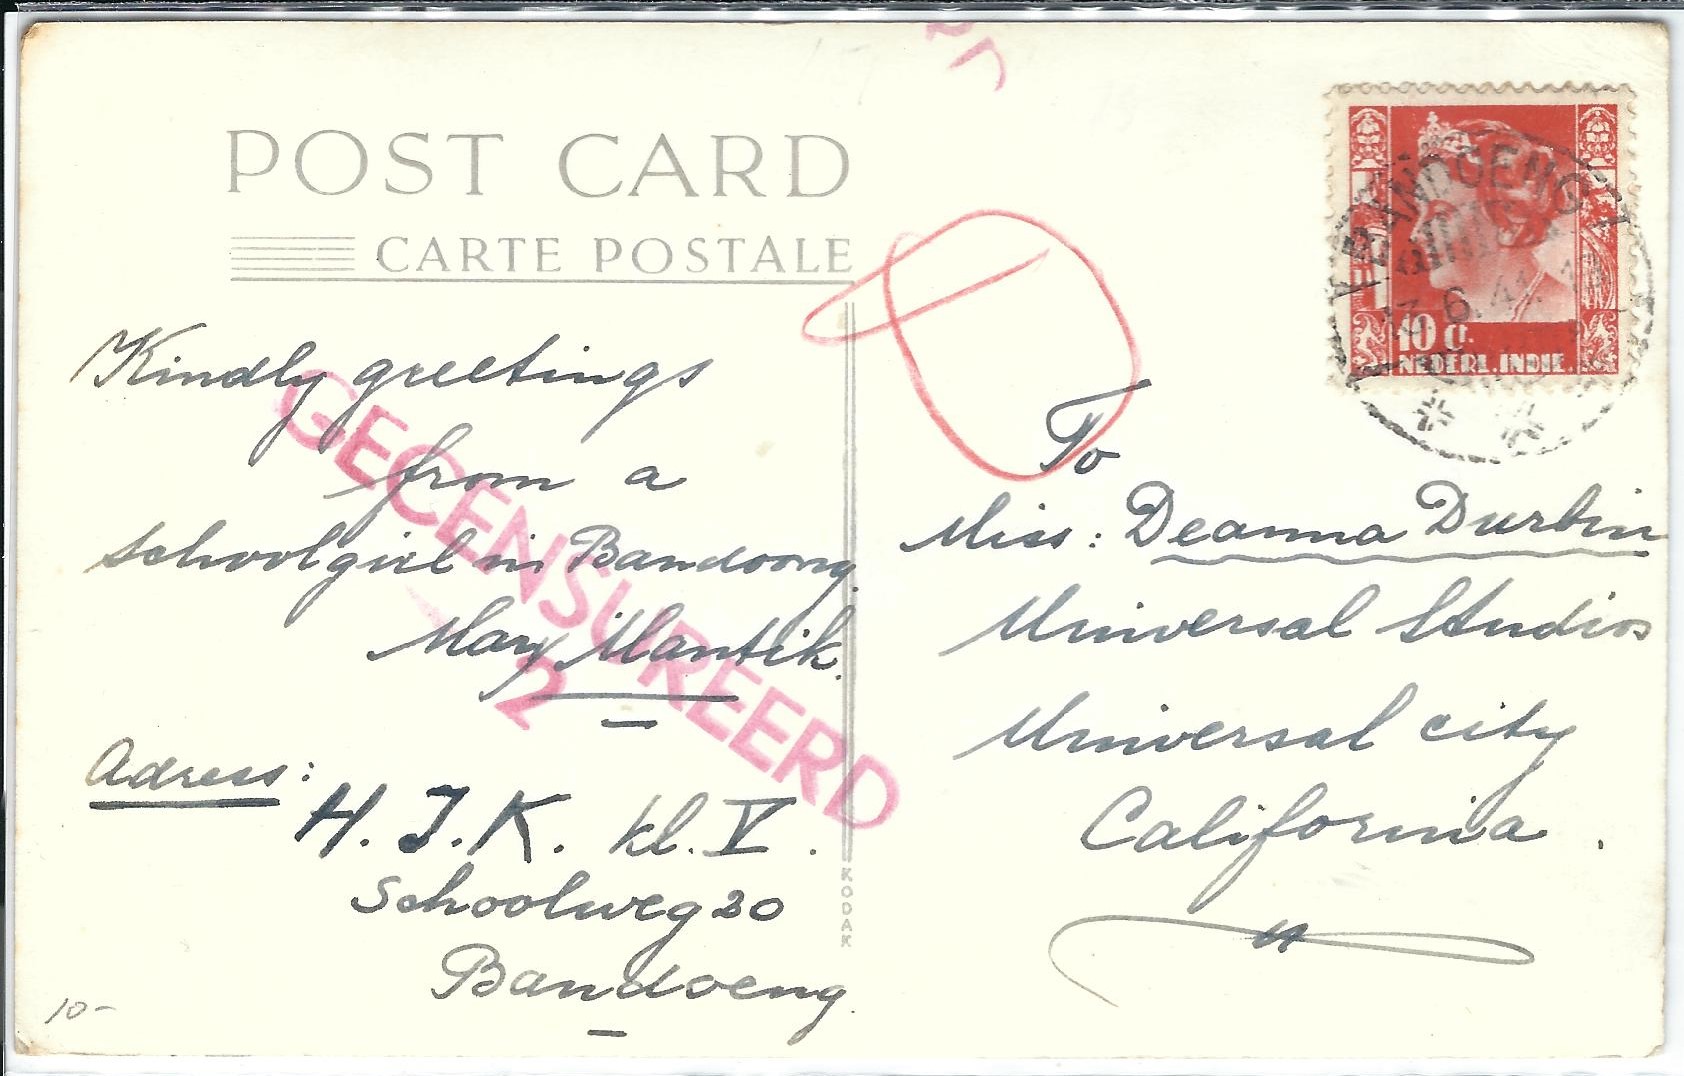 POST CARD
CARTE POSTALE
Kindly greetings
from a
schoolgirl in Bandoong.
Mary Mantik.
Adress:
H.I.K. kl. V.
Schoolweg 20
Bandoeng.
GECENSUREERD
2
KODAK
10-
BANDOENG
13.6.41.
10 ct.
NEDERL. INDIE.
To
Miss: Deanna Durbin
Universal Studios
Universal city
California.